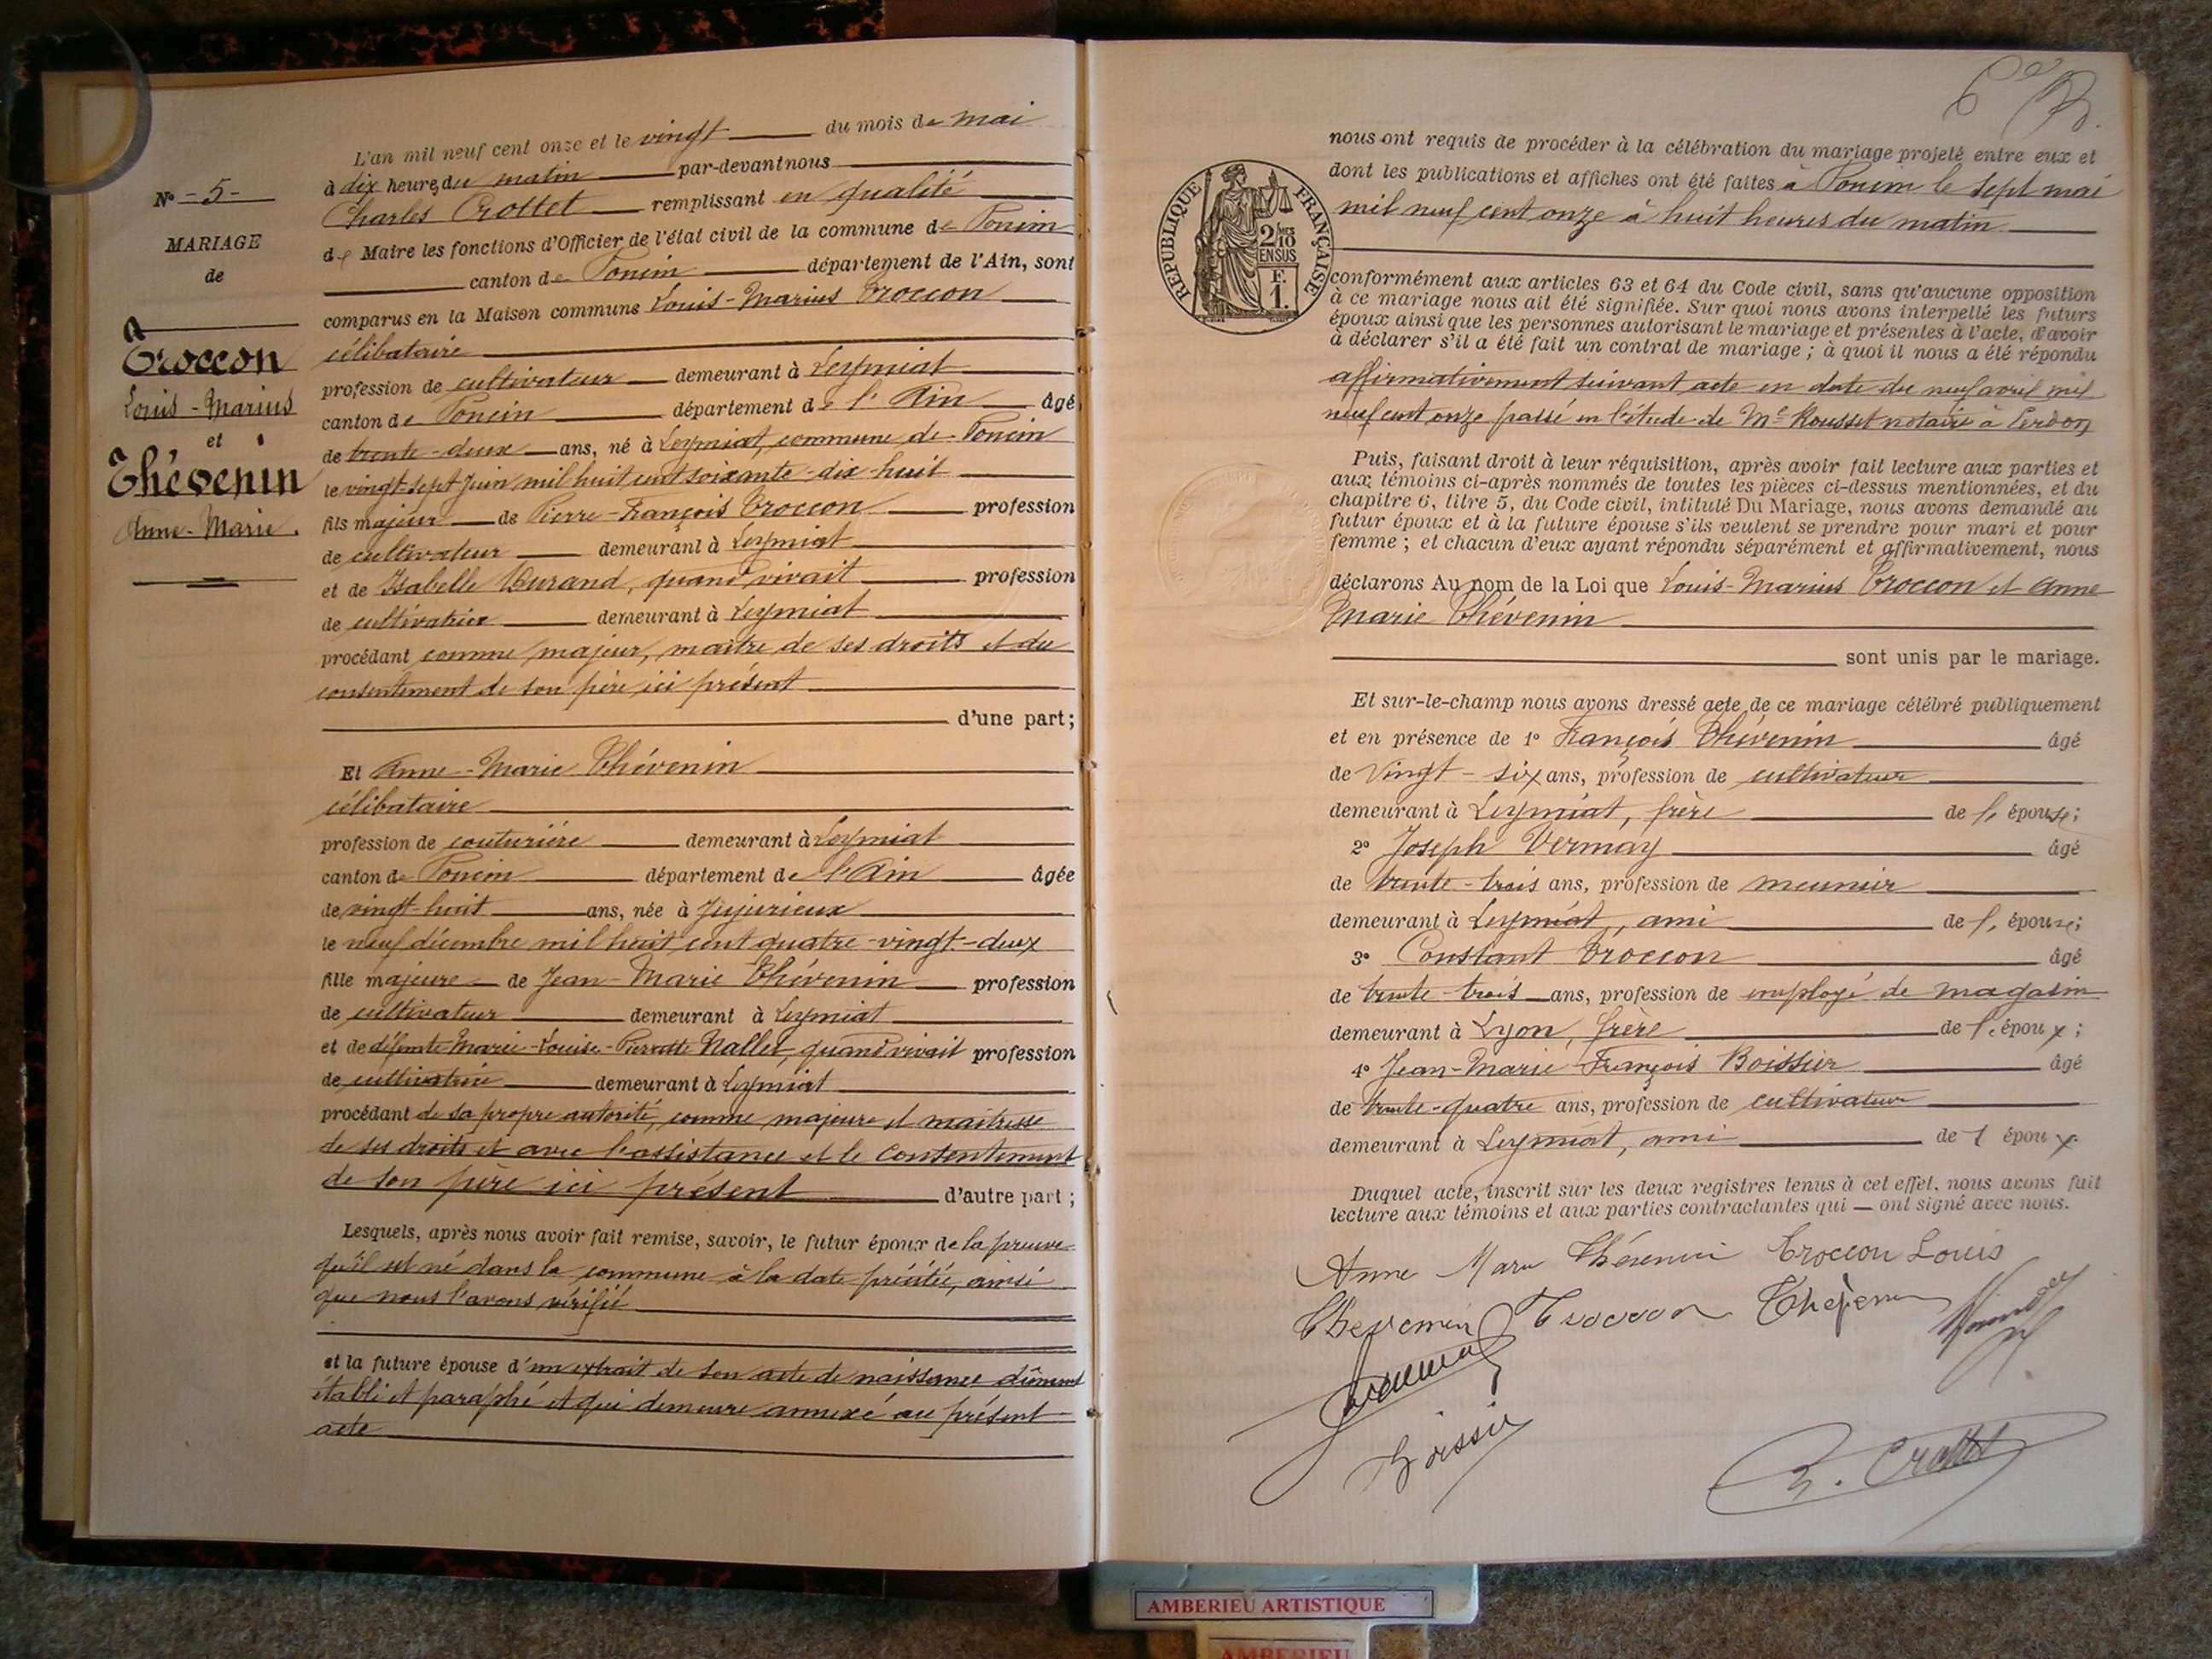 N° - 5 -
MARIAGE
de
Troccon
Louis-Marius
et
Thévenin
Anne-Marie.
L'an mil neuf cent onze et le vingt du mois de mai
à dix heures du matin par-devant nous
Charles Crottet remplissant en qualité
de Maire les fonctions d'Officier de l'état civil de la commune de Poncin
canton de Poncin département de l'Ain, sont
comparus en la Maison commune Louis-Marius Troccon
célibataire
profession de cultivateur demeurant à Leymiat
canton de Poncin département de l'Ain âgé
de trente-deux ans, né à Leymiat, commune de Poncin
le vingt-sept juin mil huit cent soixante-dix-huit
fils majeur de Pierre-François Troccon profession
de cultivateur demeurant à Leymiat
et de Isabelle Durand, quand vivait profession
de cultivatrice demeurant à Leymiat
procédant comme majeur, maître de ses droits et du
consentement de son père ici présent
d'une part;
Et Anne-Marie Thévenin
célibataire
profession de couturière demeurant à Leymiat
canton de Poncin département de l'Ain âgée
de vingt-huit ans, née à Jujurieux
le neuf décembre mil huit cent quatre-vingt-deux
fille majeure de Jean-Marie Thévenin profession
de cultivateur demeurant à Leymiat
et de défunte Marie-Louise-Pierrette Nallet, quand vivait profession
de cultivatrice demeurant à Leymiat
procédant de sa propre autorité, comme majeure et maîtresse
de ses droits et avec l'assistance et le consentement
de son père ici présent d'autre part;
Lesquels, après nous avoir fait remise, savoir, le futur époux de la preuve
qu'il est né dans la commune à la date précitée, ainsi
que nous l'avons vérifié
et la future épouse d'un extrait de son acte de naissance dûment
établi et paraphé et qui demeure annexé au présent
acte
nous ont requis de procéder à la célébration du mariage projeté entre eux et
dont les publications et affiches ont été faites à Poncin le sept mai
mil neuf cent onze à huit heures du matin
RÉPUBLIQUE FRANÇAISE
2/10
EN SUS
F.
1.
conformément aux articles 63 et 64 du Code civil, sans qu'aucune opposition
à ce mariage nous ait été signifiée. Sur quoi nous avons interpellé les futurs
époux ainsi que les personnes autorisant le mariage et présentes à l'acte, d'avoir
à déclarer s'il a été fait un contrat de mariage; à quoi il nous a été répondu
affirmativement suivant acte en date du neuf avril mil
neuf cent onze passé en l'étude de Me Rousset notaire à Cerdon
Puis, faisant droit à leur réquisition, après avoir fait lecture aux parties et
aux témoins ci-après nommés de toutes les pièces ci-dessus mentionnées, et du
chapitre 6, titre 5, du Code civil, intitulé Du Mariage, nous avons demandé au
futur époux et à la future épouse s'ils veulent se prendre pour mari et pour
femme; et chacun d'eux ayant répondu séparément et affirmativement, nous
déclarons Au nom de la Loi que Louis-Marius Troccon et Anne
Marie Thévenin
sont unis par le mariage.
Et sur-le-champ nous avons dressé acte de ce mariage célébré publiquement
et en présence de 1° François Thévenin âgé
de vingt-six ans, profession de cultivateur
demeurant à Leymiat, frère de l'épouse;
2° Joseph Vermay âgé
de trente-trois ans, profession de meunier
demeurant à Leymiat, ami de l'épouse;
3° Constant Troccon âgé
de trente-trois ans, profession de employé de magasin
demeurant à Lyon, frère de l'époux;
4° Jean-Marie François Boissier âgé
de trente-quatre ans, profession de cultivateur
demeurant à Leymiat, ami de l'époux.
Duquel acte, inscrit sur les deux registres tenus à cet effet, nous avons fait
lecture aux témoins et aux parties contractantes qui — ont signé avec nous.
Anne Marie Thévenin Troccon Louis
Thevenin Troccon Thévenin
Boissier
C. Crottet
AMBERIEU ARTISTIQUE
AMBERIEU